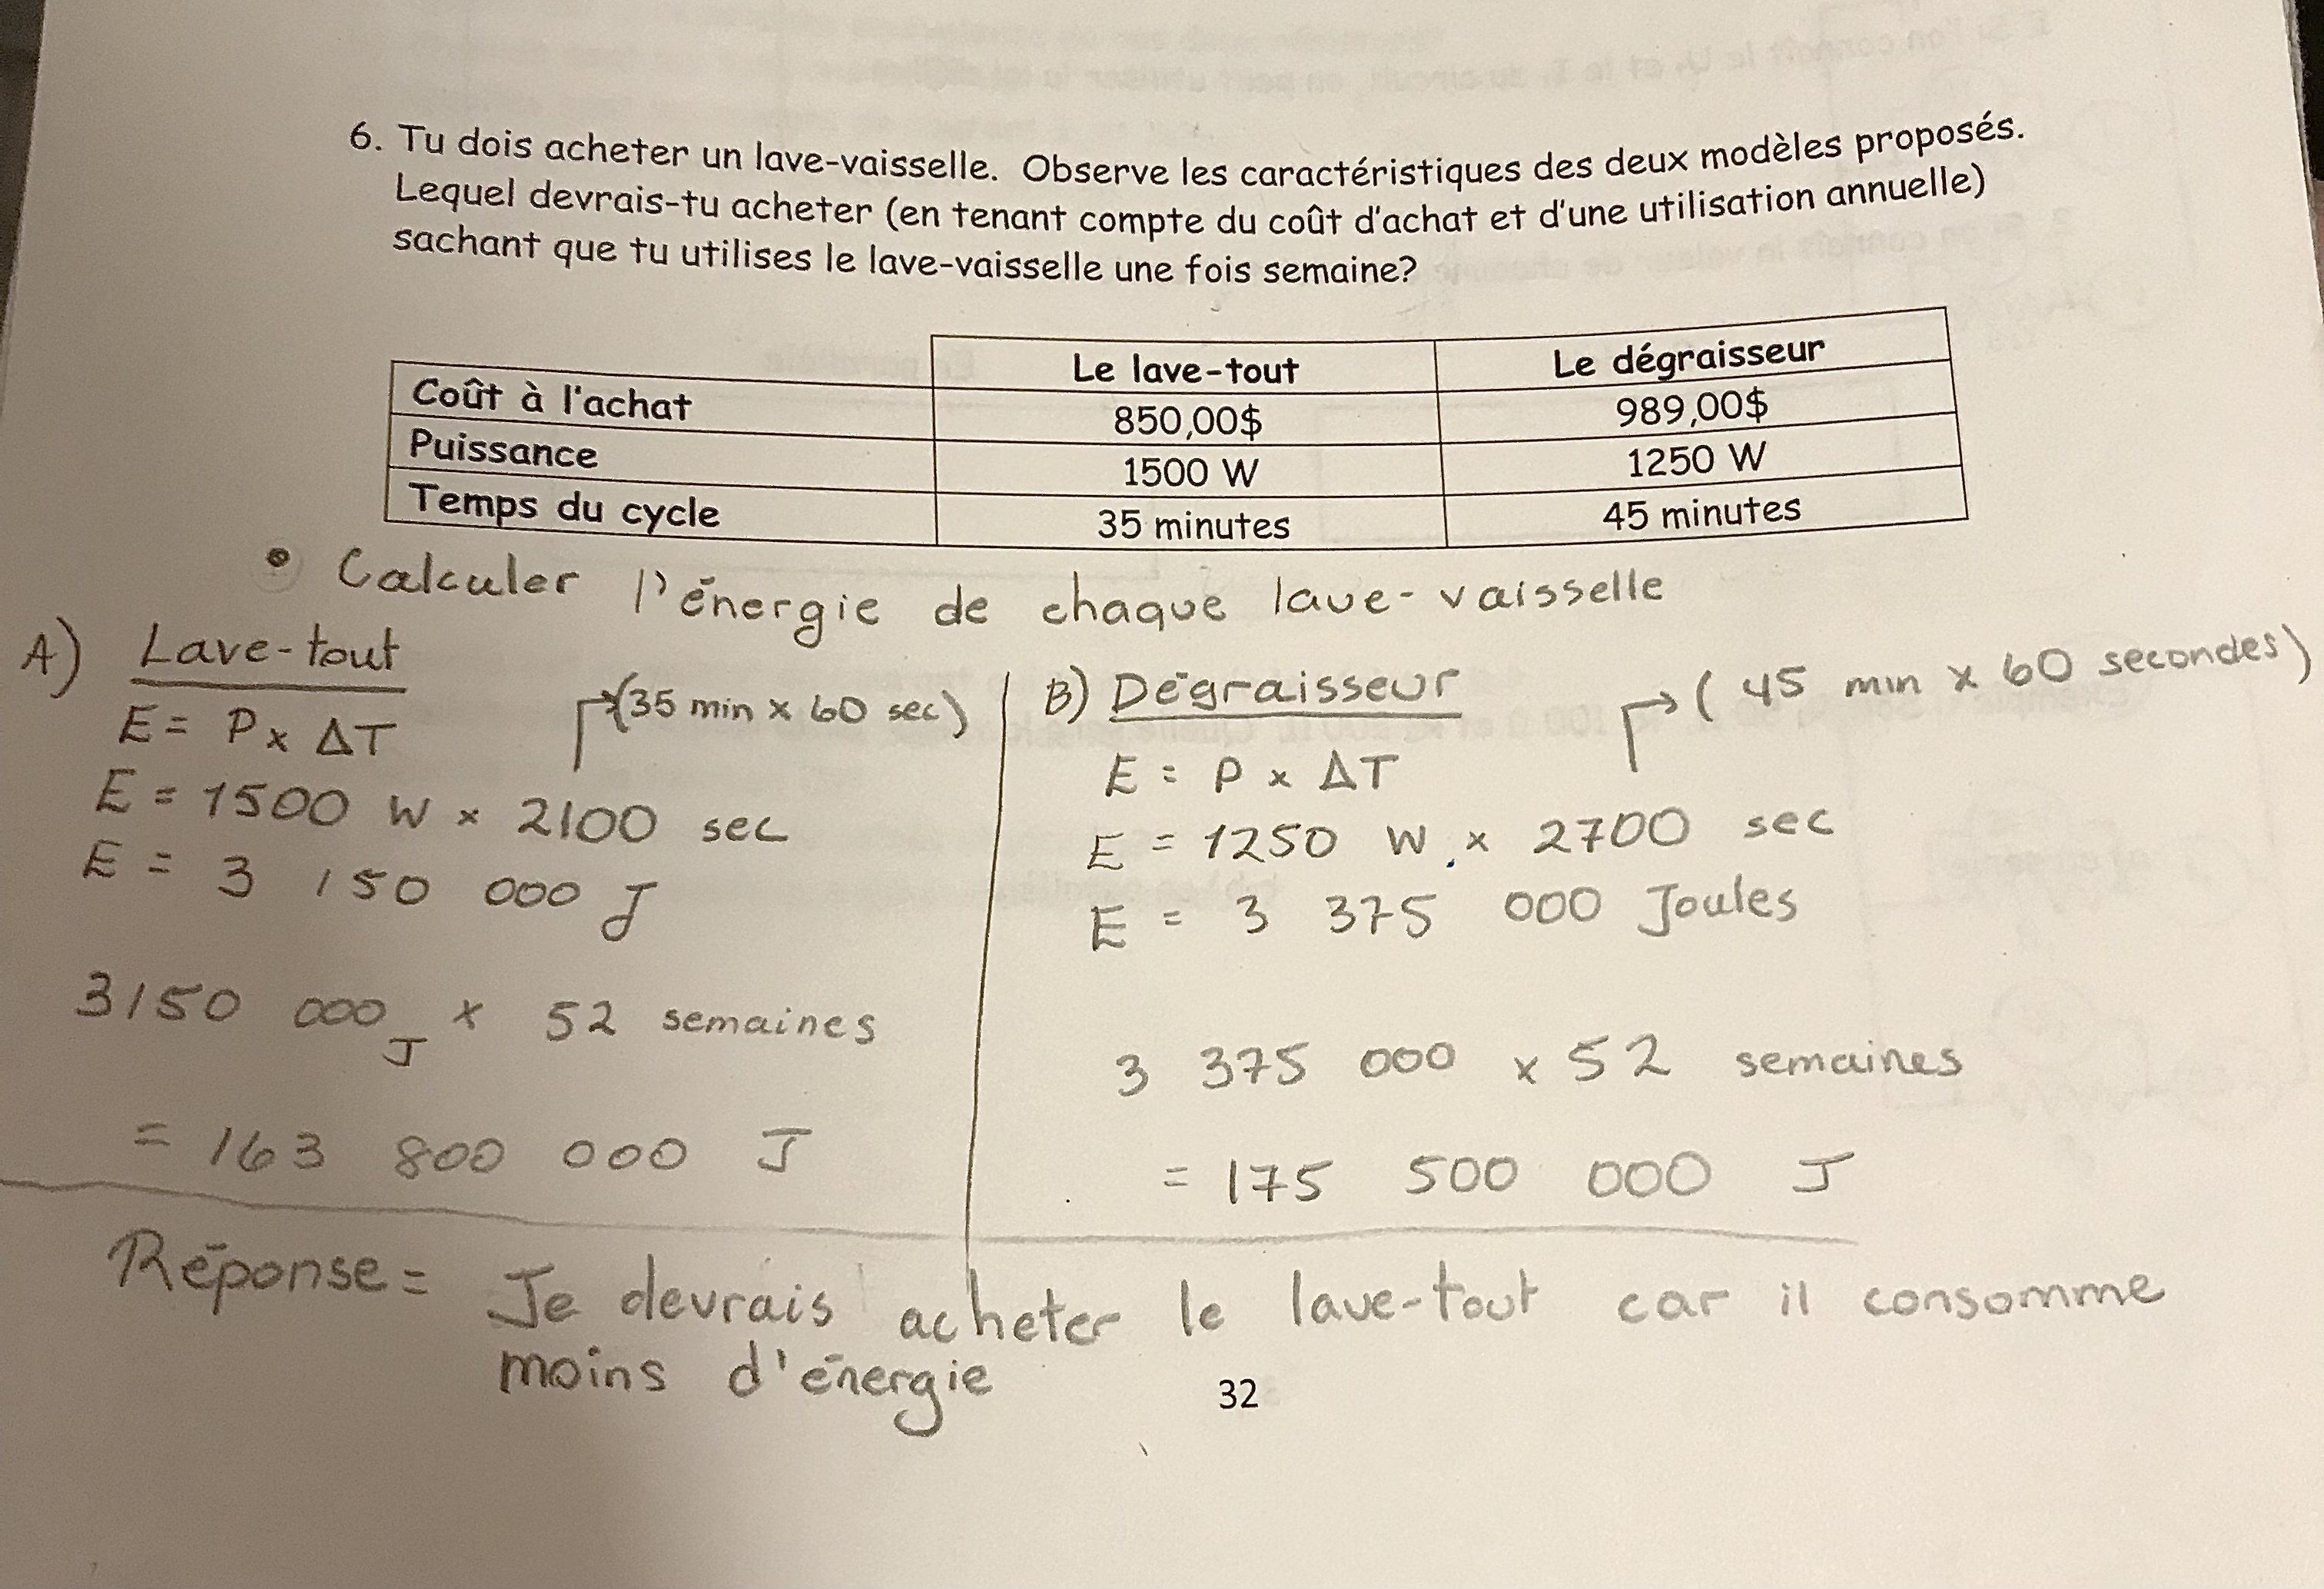 6. Tu dois acheter un lave-vaisselle. Observe les caractéristiques des deux modèles proposés.
Lequel devrais-tu acheter (en tenant compte du coût d'achat et d'une utilisation annuelle)
sachant que tu utilises le lave-vaisselle une fois semaine?
Le lave-tout Le dégraisseur
Coût à l'achat 850,00$ 989,00$
Puissance 1500 W 1250 W
Temps du cycle 35 minutes 45 minutes
• Calculer l'énergie de chaque lave-vaisselle
A) Lave-tout
(35 min x 60 sec)
E = P x ΔT
E = 1500 W x 2100 sec
E = 3 150 000 J
3150 000 J x 52 semaines
= 163 800 000 J
B) Dégraisseur
(45 min x 60 secondes)
E = P x ΔT
E = 1250 W x 2700 sec
E = 3 375 000 Joules
3 375 000 x 52 semaines
= 175 500 000 J
Réponse = Je devrais acheter le lave-tout car il consomme
moins d'énergie
32